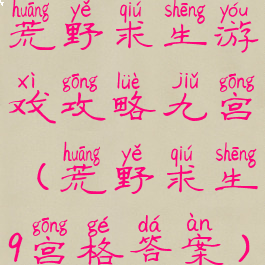 huāng yě qiú shēng yóu
荒野求生游
xì gōng lüè jiǔ gōng
戏攻略九宫
huāng yě qiú shēng
（荒野求生
gōng gé dá àn
9宫格答案）